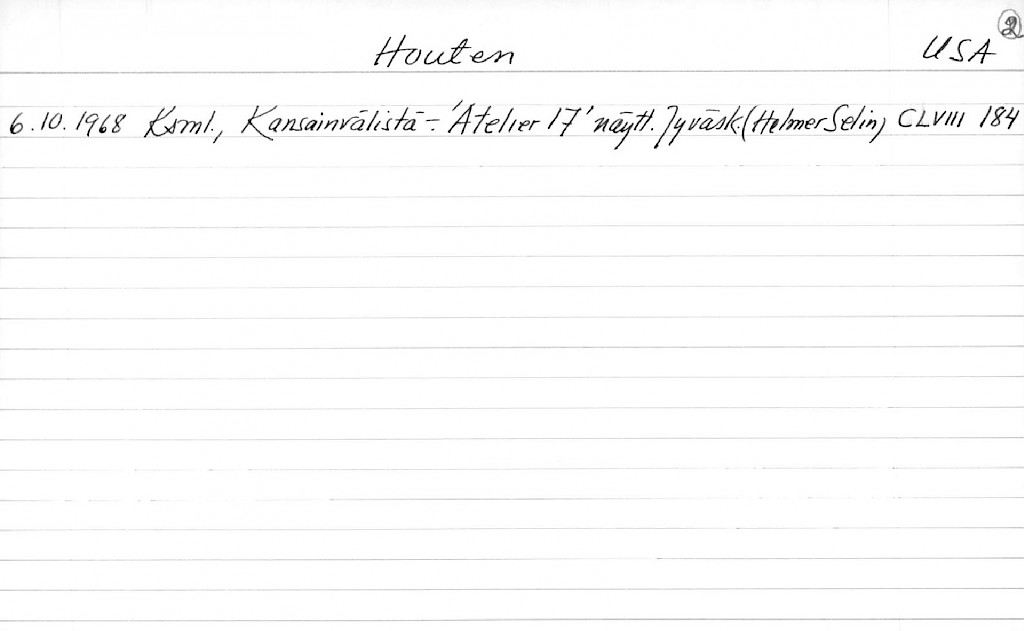 2
Houten USA
6.10.1968 Ksml., Kansainvälistä - 'Atelier 17' näytt. Jyväsk. (Helmer Selin) CLVIII 184